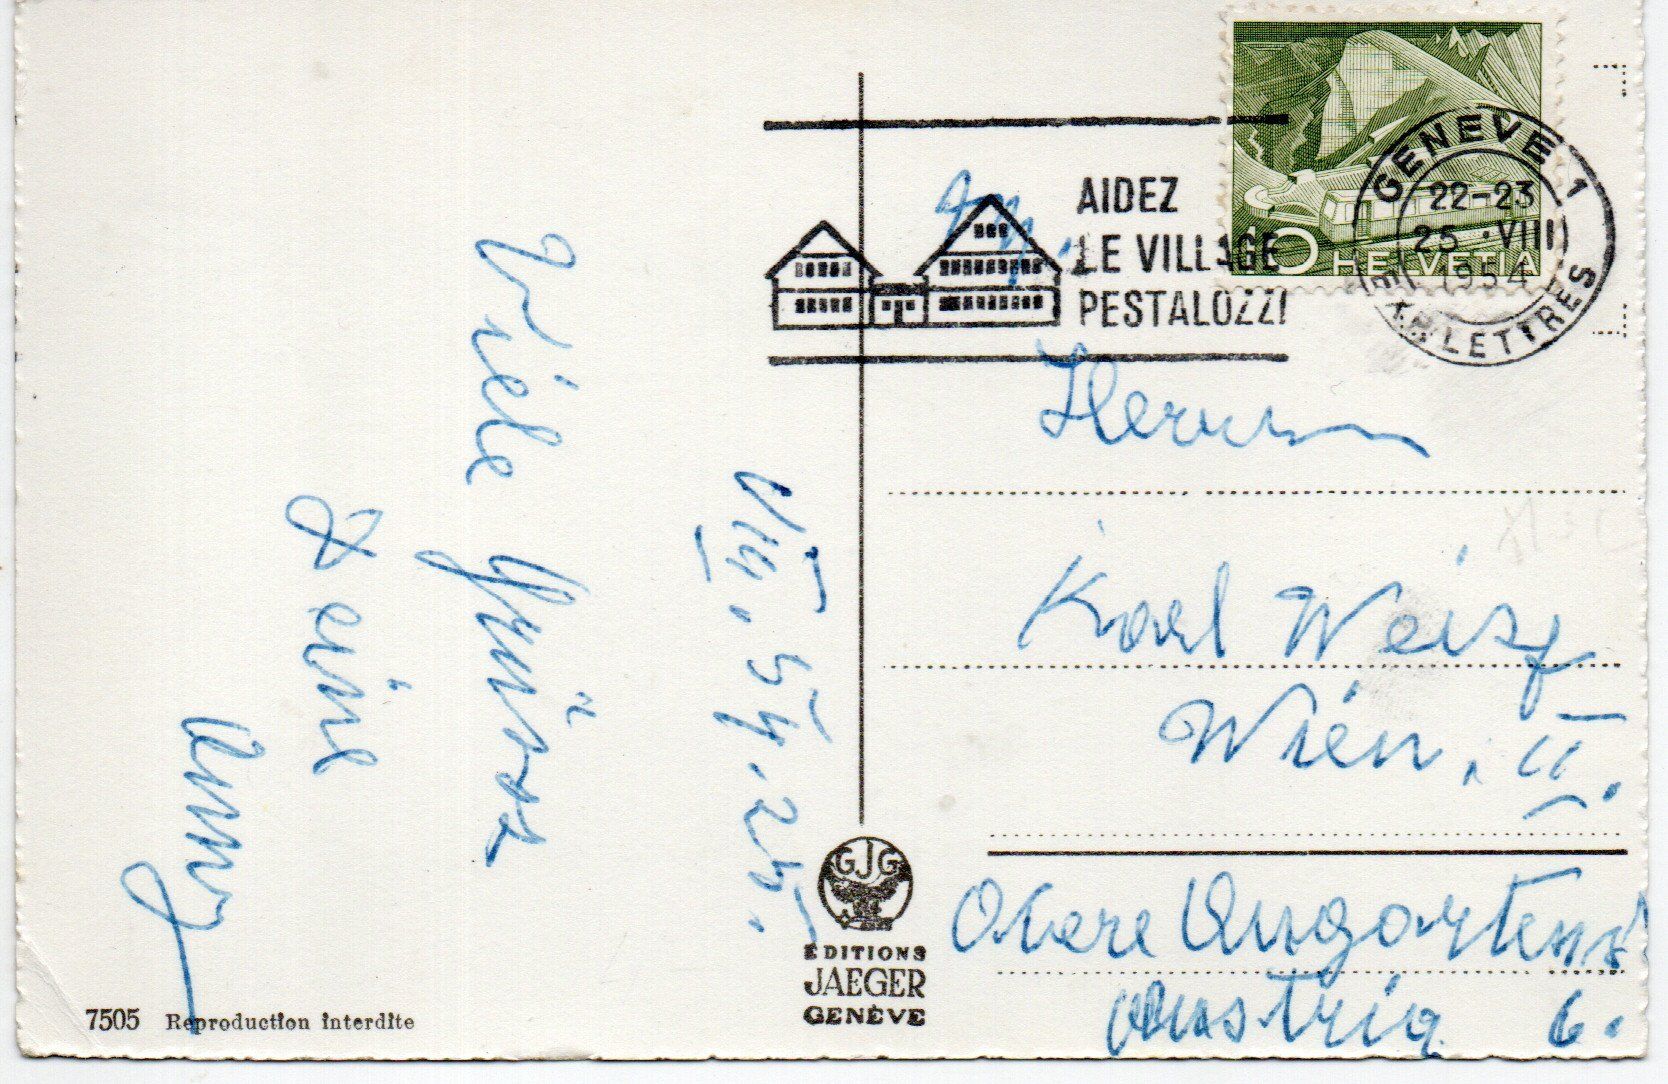 VIII. 54. 25.
Viele Grüsse
Deine
Anny
7505 Reproduction interdite
GJG
EDITIONS
JAEGER
GENÈVE
AIDEZ
LE VILLAGE
PESTALOZZI
GENEVE 1
22-23
25.VIII
1954
LETTRES
10 HELVETIA
Herrn
Karl Weisz
Wien, II.
Obere Augartenstr
Austria 6.